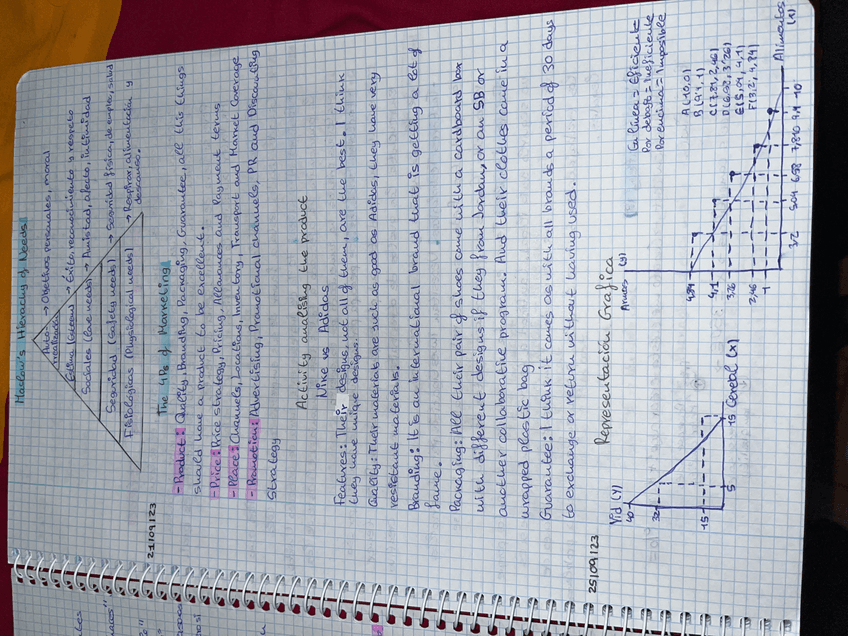 Maslow's Hierachy of Needs
Auto-realización → Objetivos personales, moral
Estima (esteem) → Éxito, reconocimiento y respeto
Sociales (love needs) → Amistad, afecto, intimidad
Seguridad (Safety needs) → Seguridad física, de empleo, salud
Fisiológicas (Physiological needs) → Respirar, alimentación y
descanso.
21/09/23
The 4Ps of Marketing
- Product: Quality, Branding, Packaging, Guarantee, all this things
should have a product to be excellent.
- Price: Price strategy, Pricing, Allowances and Payment terms
- Place: Channels, Locations, Inventory, Transport and Market Coverage
- Promotion: Advertising, Promotional channels, PR and Discounting
Strategy
Activity analising the product
Nike vs Adidas
Features: Their designs, not all of them, are the best. I think
they have unique designs.
Quality: Their materials are such as good as Adidas, they have very
resistant materials.
Branding: It is an international brand that is getting a lot of
fame.
Packaging: All their pair of shoes come with a cardboard box
with different designs if they from Jordan, or an SB or
another collaborative program. And their clothes come in a
wrapped plastic bag
Guarantee: I think it comes as with all brands a period of 30 days
to exchange or return without having used.
25/09/23
Representación Grafica
Vid (Y)
40
32
15
5
15
Cereal (X)
(Y)
4,84
4,1
3,26
2,46
1
3,2
5,04
Alimentos
(X)
En línea = Eficiente
Por debajo = ineficiente
Por encima = imposible
A (10,0)